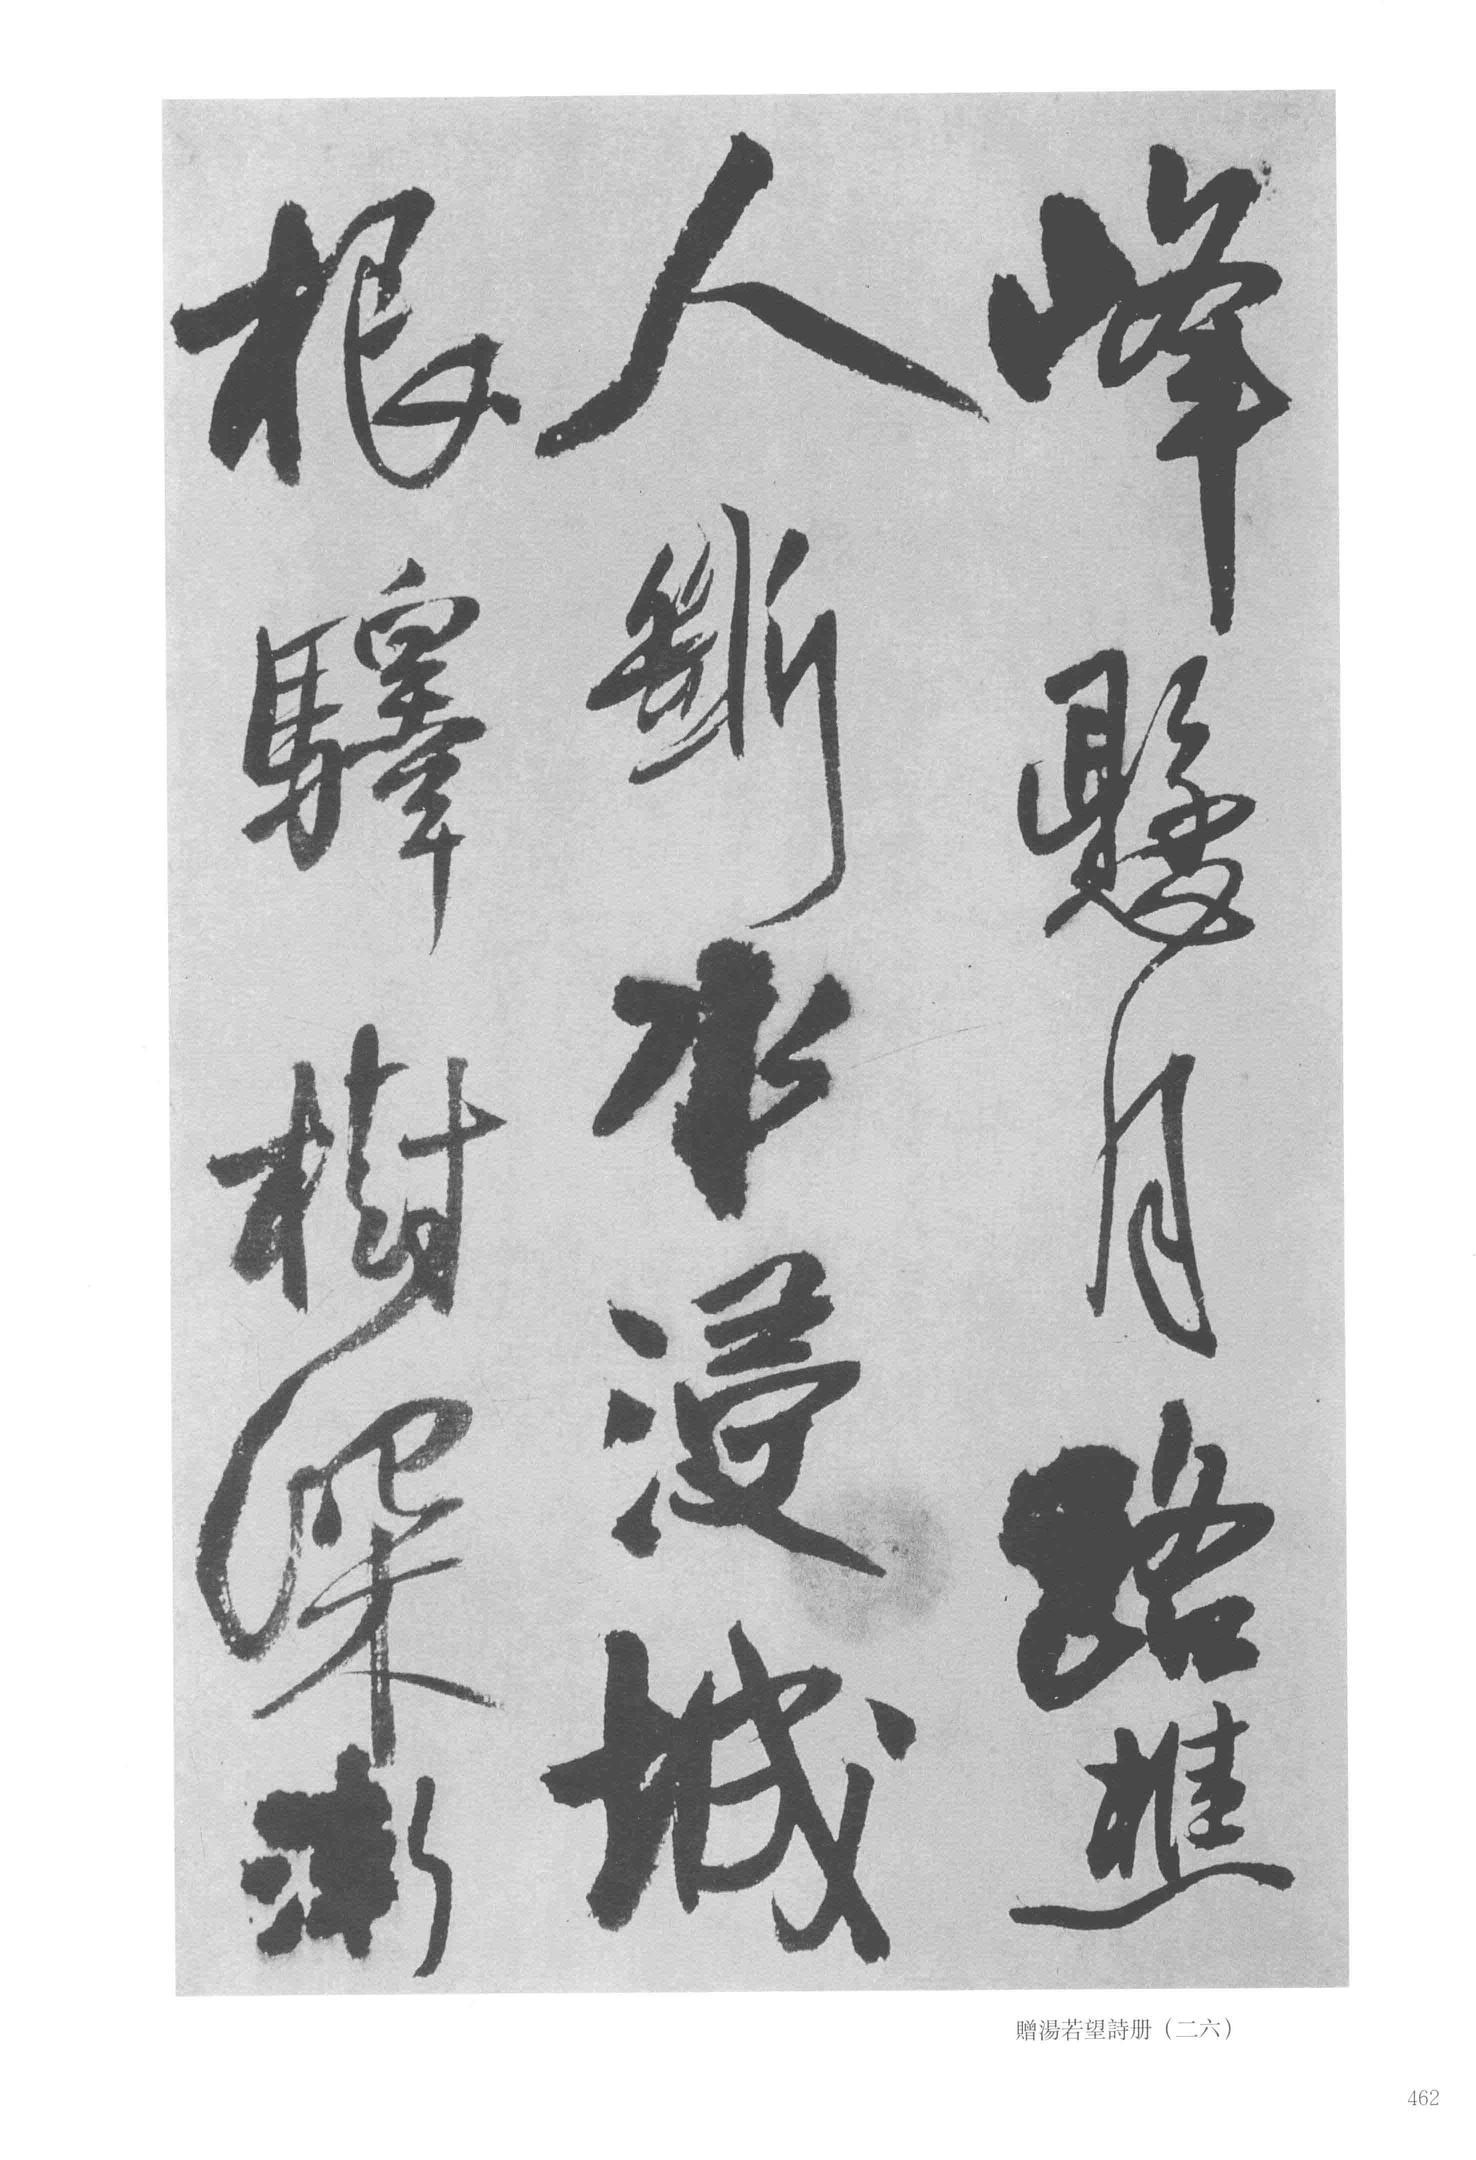 峰懸月路樵
人斷水浸城
根驛樹深漸
贈湯若望詩册（二六）
462